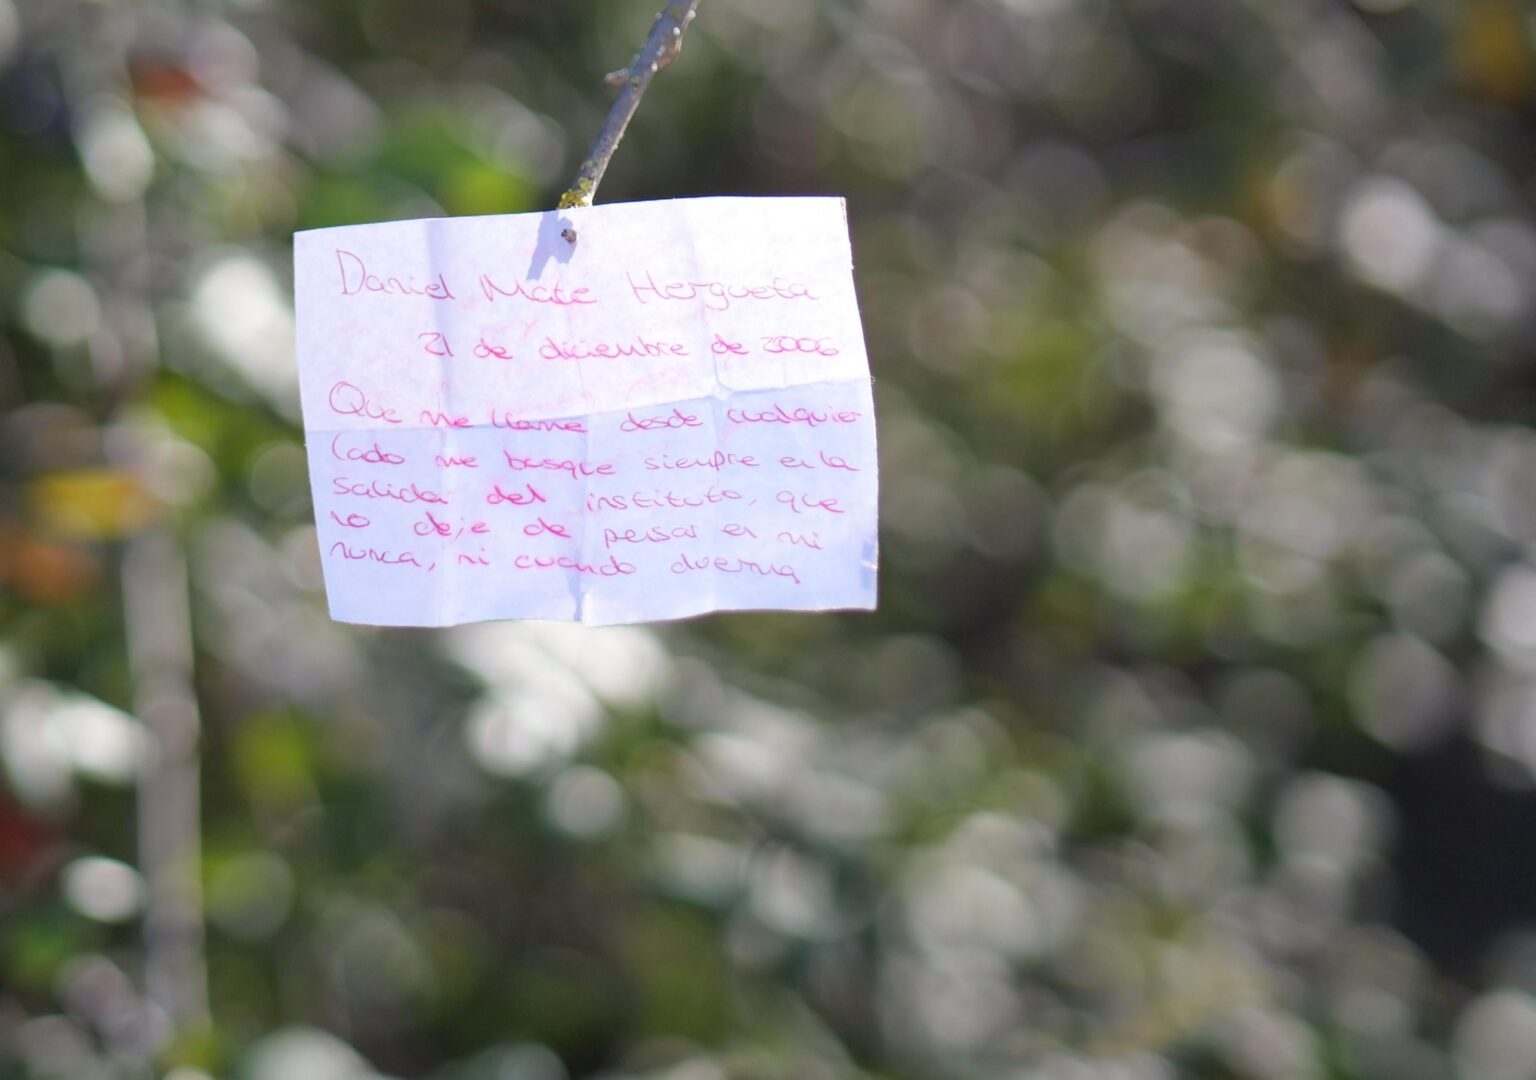 Daniel Mate Hergueta
21 de diciembre de 2006
Que me llame desde cualquier
lado me busque siempre en la
salida del instituto, que
no deje de pensar en mi
nunca, ni cuando duerma